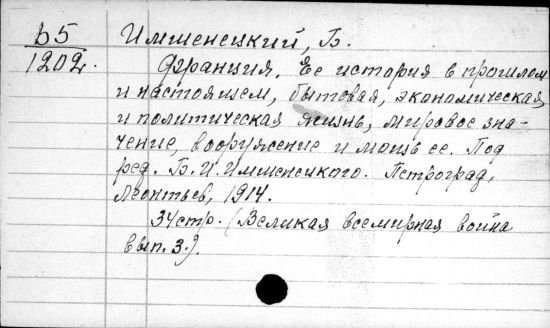 Б5
1202.
Имшенецкий, Б.
Франция. Ее история в прошлом
и настоящем, бытовая, экономическая
и политическая жизнь, мировое зна-
чение, вооружение и мощь ее. Под
ред. Б. И. Имшенецкого. Петроград,
Леонтьев, 1914.
34 стр. (Великая всемирная война
вып. 3.).